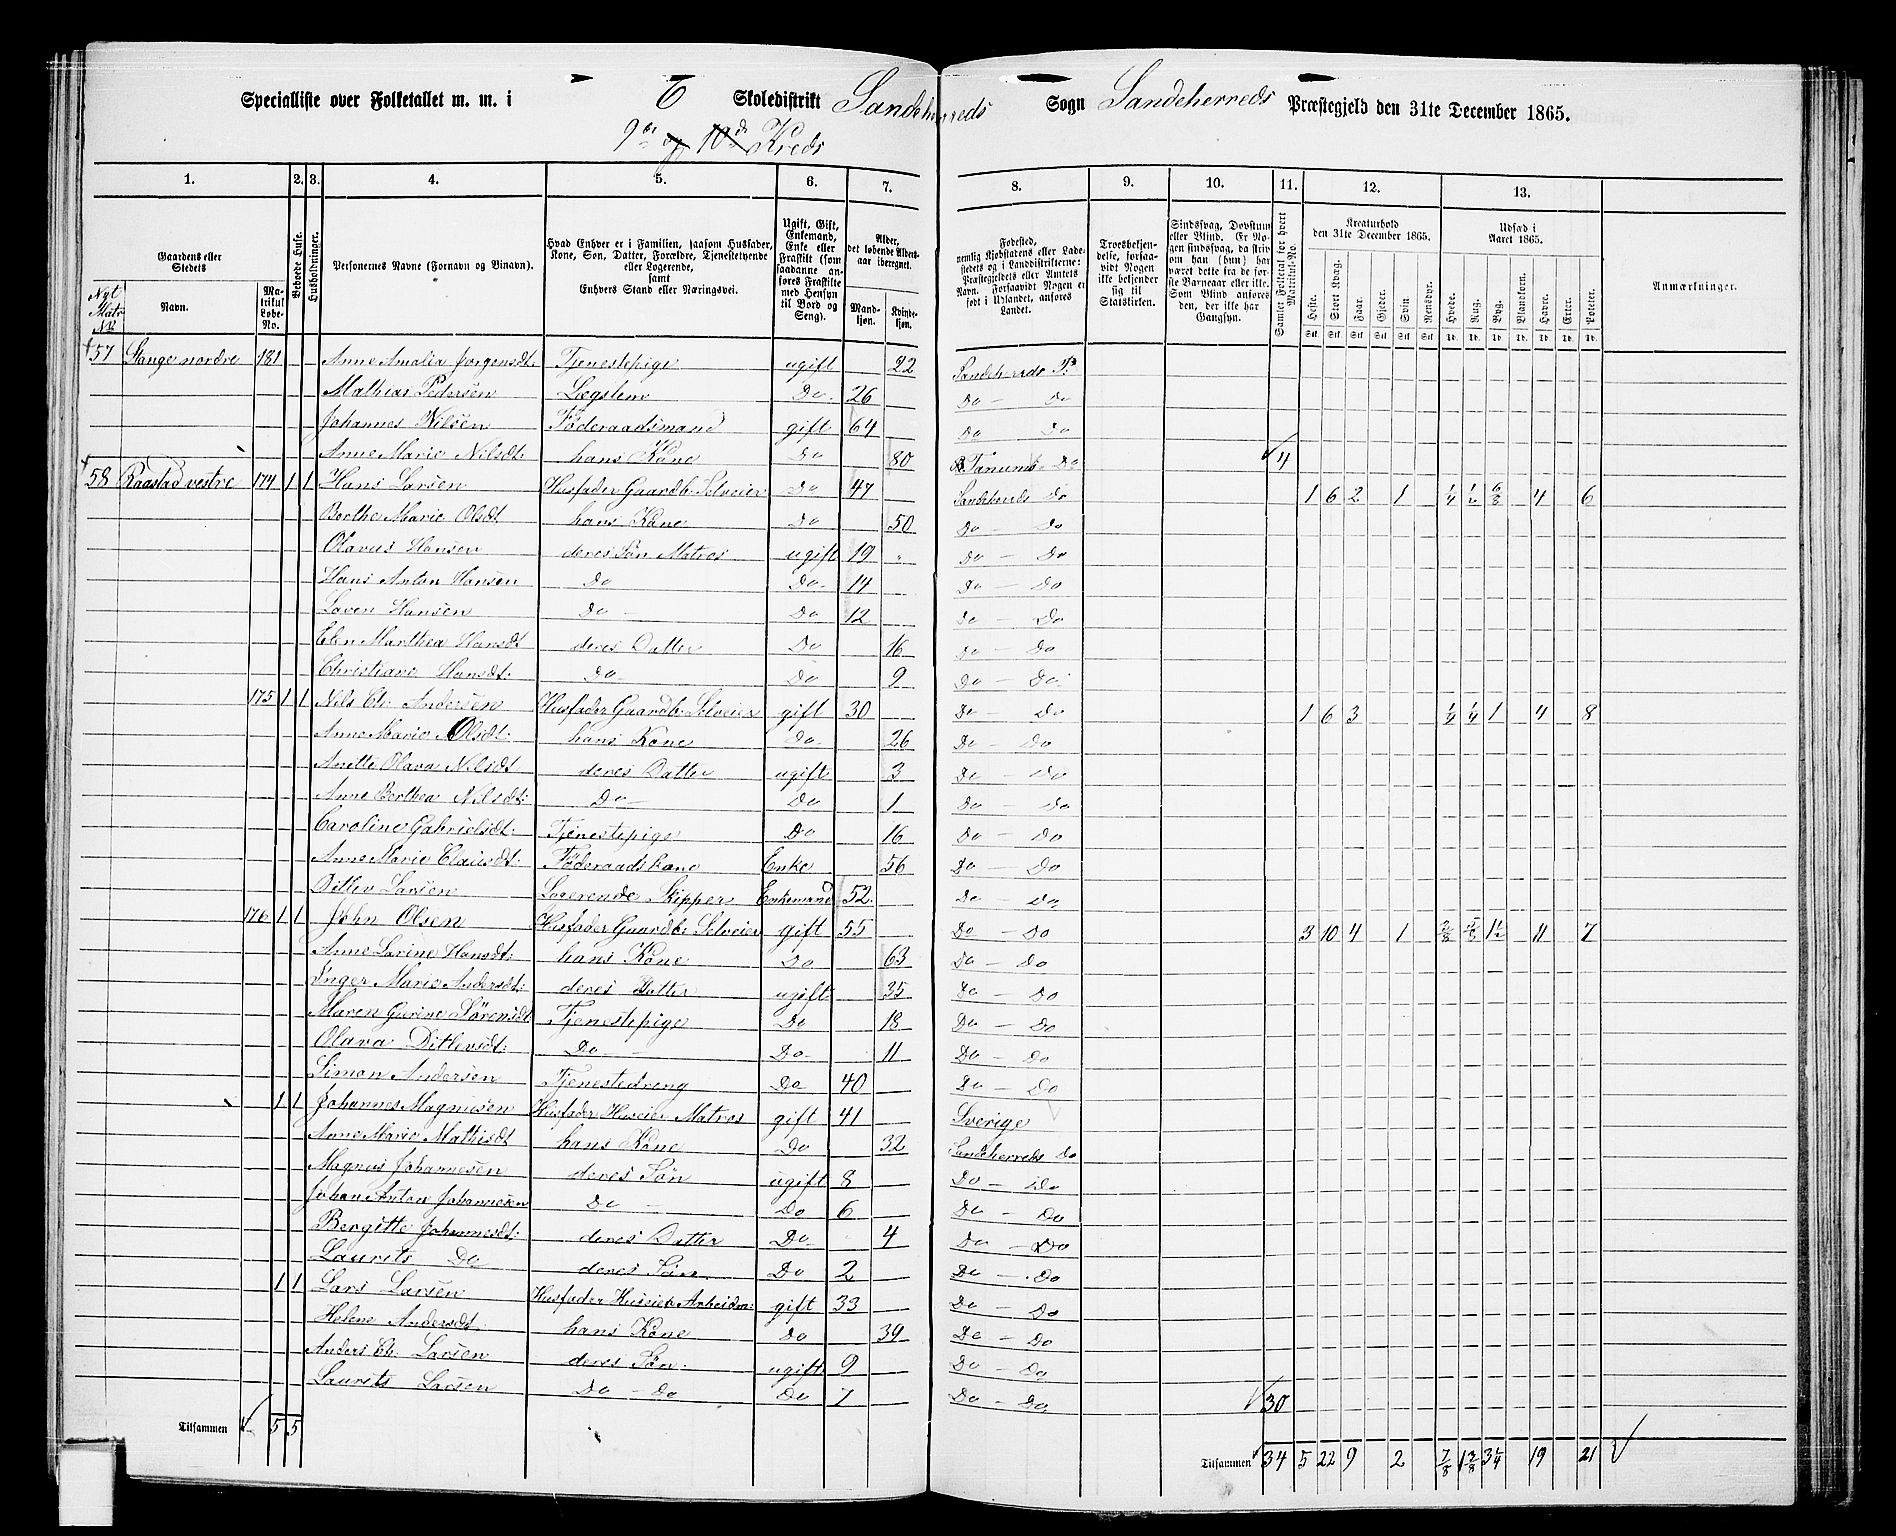 Specialliste over Folketallet m. m. i 6 Skoledistrikt Sandeherreds Sogn Sandeherreds Præstegjeld den 31te December 1865.
9de og 10de Kreds
1. 2. 3. 4. 5. 6. 7. 8. 9. 10. 11. 12. 13.
Gaardens eller Stedets
Nyt Matr No
Navn.
Matrikul Løbe-No.
Beboede Huse.
Husholdninger.
Personernes Navne (Fornavn og Binavn).
Hvad Enhver er i Familien, saasom Husfader, Kone, Søn, Datter, Forældre, Tjenestetyende eller Logerende, samt Enhvers Stand eller Næringsvei.
Ugift, Gift, Enkemand, Enke eller Fraskilt (som saadanne anføres Fraskilte med Hensyn til Bord og Seng).
Alder, det løbende Aldersaar iberegnet.
Mandkjøn. Kvindekjøn.
Fødested, nemlig Kjøbstadens eller Ladestedets og i Landdistrikterne: Præstegjeldets eller Amtets Navn. Forsaavidt Nogen er født i Udlandet, anføres Landet.
Troesbekjendelse, forsaavidt Nogen ikke bekjender sig til Statskirken.
Sindssvag, Døvstum eller Blind. Er Nogen sindssvag, da skrives om han (hun) har været dette fra de første Barneaar eller ikke. Som Blind anføres den, der ikke har Gangsyn.
Samlet Folketal for hvert Matrikul-No.
Kreaturhold den 31te December 1865.
Heste. Stort Kvæg. Faar. Gjeder. Svin. Rensdyr.
Udsæd i Aaret 1865.
Hvede. Rug. Byg. Blandkorn. Havre. Erter. Poteter.
Anmærkninger.
57 Stange nordre 181 Anne Amalia Jorgensdt: Tjenestepige ugift 22 Sandeherreds P:
Mathias Pedersen Lægslem Do 26 Do - Do
Johannes Nilsen Föderaadsmand gift 64 Do Do
Anne Marie Nilsdt: hans Kone Do 80 Tanums Do 4
58 Raastad vestre 174 1 1 Hans Larsen Husfader Gaardb: Selveier Do 47 Sandeherreds Do 1 6 2 1 1/4 1/2 6/8 4 6
Berthe Marie Olsdt hans Kone Do 50 Do - Do
Olavus Hansen deres Søn Matros ugift 19 Do - Do
Hans Anton Hansen Do Do 14 Do - Do
Laven Hansen Do Do 12 Do - Do
Elen Marthea Hansdt deres Datter Do 16 Do - Do
Christiane Hansdt: Do Do 9 Do - Do
175 1 1 Nils Chr. Andersen Husfader Gaardb: Selveier gift 30 Do - Do 1 6 3 1/4 1/4 1 4 8
Anne Marie Olsdt: hans Kone Do 26 Do - Do
Anette Olava Nilsdt deres Datter ugift 3 Do - Do
Anne Berthea Nilsdt: Do Do 1 Do - Do
Caroline Gabrielsdt: Tjenestepige Do 16 Do - Do
Anne Marie Clausdt: Föderaadskone Enke 56 Do - Do
Ditlev Larsen Logerende Skipper Enkemand 52 Do - Do
176 1 1 John Olsen Husfader Gaardb: Selveier gift 55 Do - Do 3 10 4 1 3/8 5/8 1 1/2 11 7
Anne Larine Hansdt: hans Kone Do 63 Do - Do
Inger Marie Andersdt: deres Datter ugift 35 Do - Do
Maren Gurine Sörensdt Tjenestepige Do 18 Do - Do
Olava Ditlevsdt: Do Do 11 Do - Do
Simon Andersen Tjenestedreng Do 40 Do - Do
1 1 Johannes Magnusen Husfader Huseier Matros gift 41 Sverige
Anne Marie Mathisdt hans Kone Do 32 Sandeherreds Do
Magnus Johannesen deres Søn ugift 8 Do - Do
Johan Anton Johannesen Do Do 6 Do - Do
Bergitte Johannesdt: deres Datter Do 4 Do - Do
Laurits Do deres Søn Do 2 Do - Do
1 1 Lars Larsen Husfader Huseier Arbeidsm: gift 33 Do - Do
Helene Andersdt hans Kone Do 39 Do - Do
Anders Ch. Larsen deres Søn ugift 9 Do - Do
Laurits Larsen Do - Do Do 7 Do - Do 30
Tilsammen 5 5 Tilsammen 34 5 22 9 2 7/8 1 3/8 3 1/4 19 21